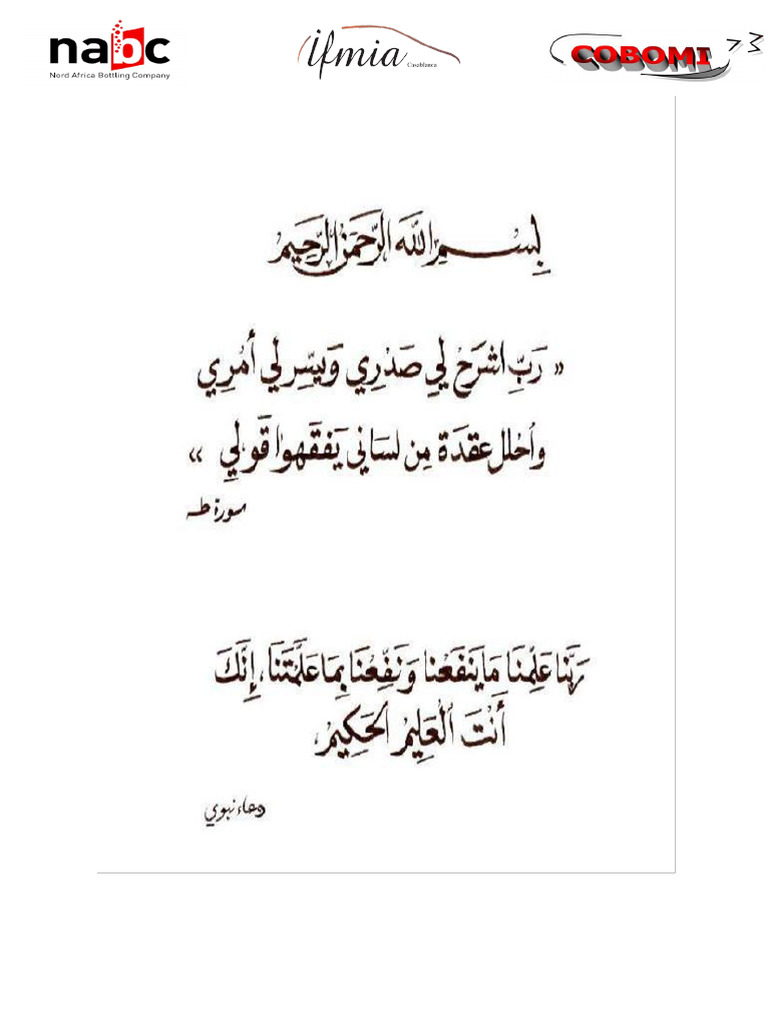 nabc
Nord Africa Bottling Company
ifmia
Casablanca
COBOMI
بِسْمِ اللهِ الرَّحْمَنِ الرَّحِيمِ
« رَبِّ اشْرَحْ لِي صَدْرِي وَيَسِّر لِي أَمْرِي
وَاحْلل عقدَة مِن لسَاني يَفقَهوا قَوْلِي »
سورة طه
رَبَّنا عَلِّمْنَا مَا يَنفَعُنا وَنَفِّعْنَا بِمَا عَلَّمْتَنَا، إِنَّكَ
أَنْتَ الْعَلِيمُ الْحَكِيمُ،
دعاء نبوي